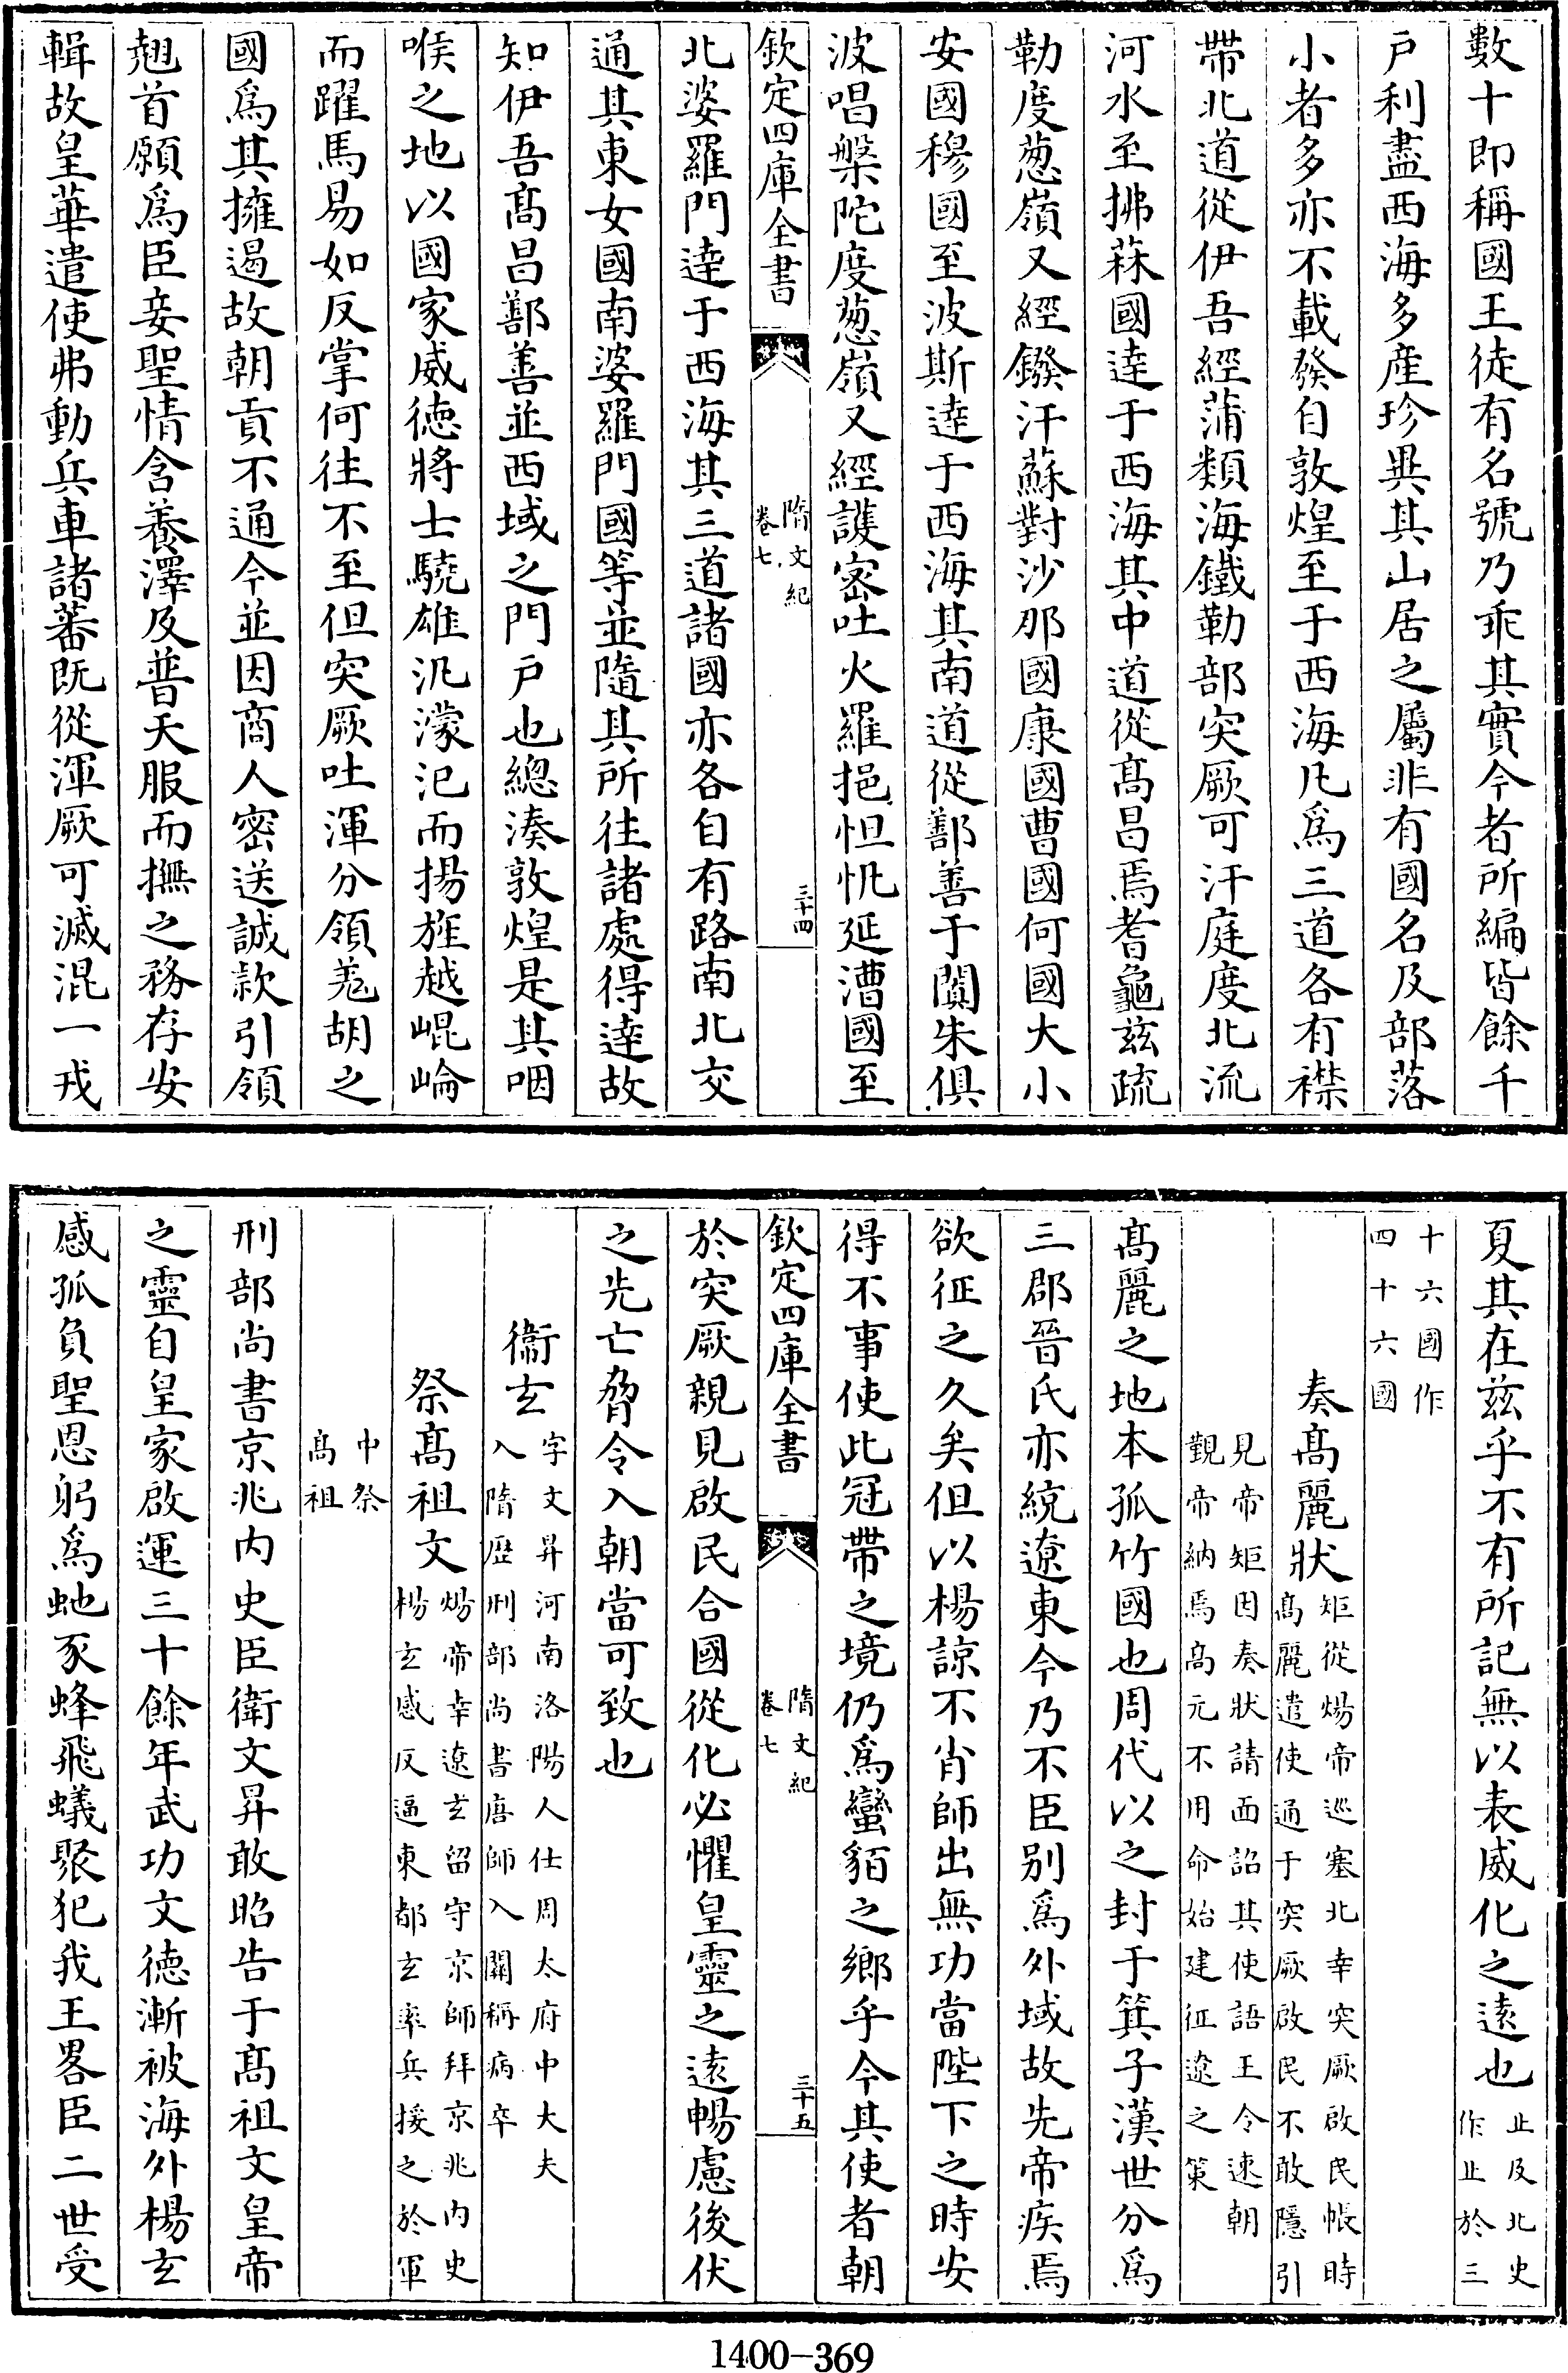 數十即稱國王徒有名號乃乖其實今者所編皆餘千
户利盡西海多產珍異其山居之屬非有國名及部落
小者多亦不載發自敦煌至于西海凡為三道各有襟
帶北道從伊吾經蒲類海鐵勒部突厥可汗庭度北流
河水至拂菻國逹于西海其中道從髙昌焉耆龜兹疏
勒度葱嶺又經鏺汗蘇對沙那國康國曹國何國大小
安國穆國至波斯逹于西海其南道從鄯善于闐朱俱
波唱槃陀度葱嶺又經護密吐火羅挹怛忛延漕國至
欽定四庫全書
隋文紀
卷七
三十四
北婆羅門逹于西海其三道諸國亦各自有路南北交
通其東女國南婆羅門國等並隨其所往諸處得逹故
知伊吾髙昌鄯善並西域之門户也總湊敦煌是其咽
喉之地以國家威徳將士驍雄汎濛汜而揚旌越崐崘
而躍馬易如反掌何往不至但突厥吐渾分領羌胡之
國為其擁遏故朝貢不通今並因商人密送誠款引領
翹首願為臣妾聖情含養澤及普天服而撫之務存安
輯故皇華遣使弗動兵車諸蕃既從渾厥可滅混一戎
夏其在兹乎不有所記無以表威化之逺也止及北史
作止於三
十六國作
四十六國
奏髙麗狀矩從煬帝巡塞北幸突厥啟民帳時
髙麗遣使通于突厥啟民不敢隱引
見帝矩因奏狀請面詔其使語王令速朝
觐帝納焉髙元不用命始建征遼之策
髙麗之地本孤竹國也周代以之封于箕子漢世分為
三郡晉氏亦統遼東今乃不臣别為外域故先帝疾焉
欲征之久矣但以楊諒不肖師出無功當陛下之時安
得不事使此冠帶之境仍為蠻貊之鄉乎今其使者朝
欽定四庫全書
隋文紀
卷七
三十五
於突厥親見啟民合國從化必懼皇靈之逺暢慮後伏
之先亡脅令入朝當可致也
衞玄字文昇河南洛陽人仕周太府中大夫
入隋歴刑部尚書唐師入關稱病卒
祭髙祖文煬帝幸遼玄留守京師拜京兆内史
楊玄感反逼東都玄率兵援之於軍
中祭
髙祖
刑部尚書京兆内史臣衛文昇敢昭告于髙祖文皇帝
之靈自皇家啟運三十餘年武功文徳漸被海外楊玄
感孤負聖恩躬為虵豕蜂飛蟻聚犯我王畧臣二世受
1400-369